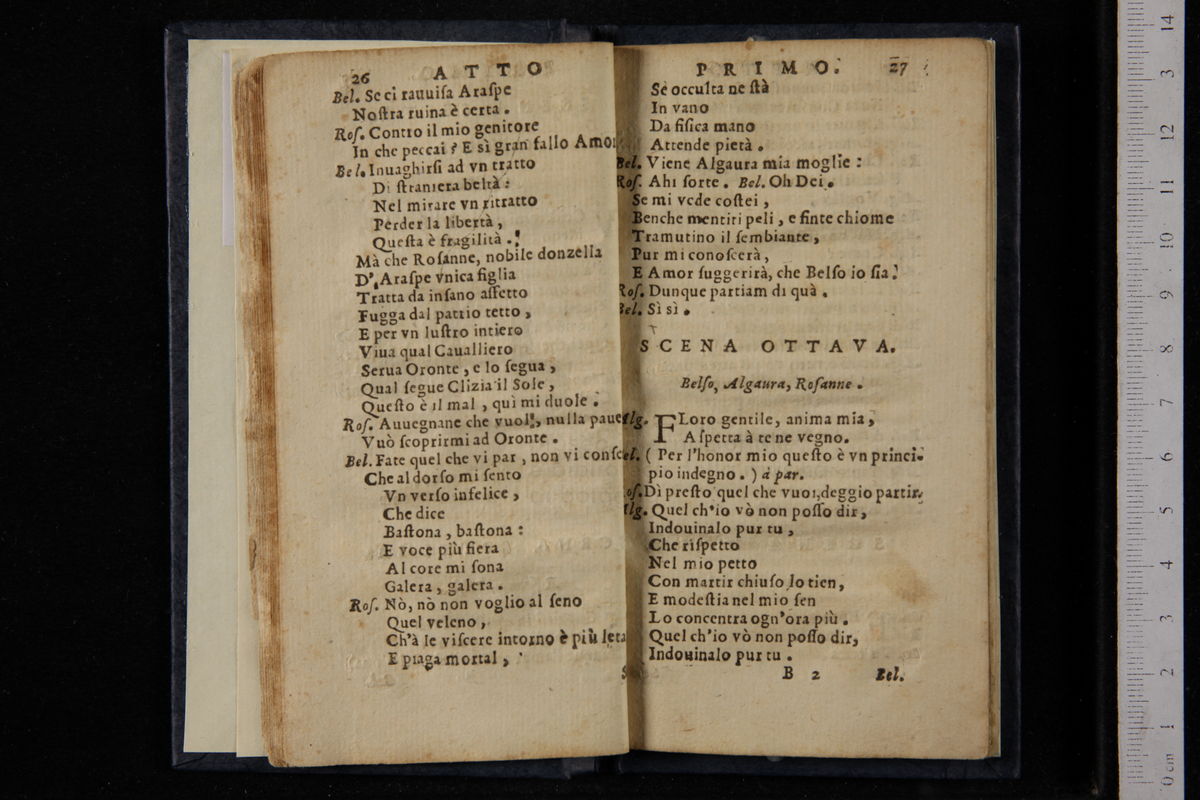 26 ATTO
Bel. Se ci rauuiſa Araſpe
Noſtra ruina è certa .
Roſ. Contro il mio genitore
In che peccai ? E sì gran fallo Amor
Bel. Inuaghirſi ad vn tratto
Di ſtraniera beltà :
Nel mirare vn ritratto
Perder la libertà ,
Queſta è fragilità .
Mà che Roſanne, nobile donzella
D' Araſpe vnica figlia
Tratta da inſano affetto
Fugga dal patrio tetto ,
E per vn luſtro intiero
Viua qual Caualliero
Serua Oronte , e lo ſegua ,
Qual ſegue Clizia il Sole ,
Queſto è il mal , quì mi duole .
Roſ. Auuegnane che vuol , nulla paue
Vuò ſcoprirmi ad Oronte .
Bel. Fate quel che vi par , non vi
Che al dorſo mi ſento
Vn verſo infelice ,
Che dice
Baſtona , baſtona :
E voce più fiera
Al core mi ſona
Galera , galera .
Roſ. Nò, nò non voglio al ſeno
Quel veleno ,
Ch'à le viſcere intorno è più
E piaga mortal ,
PRIMO. 27
Se occulta ne ſtà
In vano
Da fiſica mano
Attende pietà .
Bel. Viene Algaura mia moglie :
Roſ. Ahi ſorte . Bel. Oh Dei .
Se mi vede coſtei ,
Benche mentiti peli , e finte chiome
Tramutino il ſembiante ,
Pur mi conoſcerà ,
E Amor ſuggerirà, che Belſo io ſia .
Roſ. Dunque partiam di quà .
Bel. Sì sì .
SCENA OTTAVA.
Belſo, Algaura, Roſanne .
Alg. FLoro gentile, anima mia ,
Aſpetta à te ne vegno.
Bel. ( Per l'honor mio queſto è vn princi-
pio indegno . ) à par.
Roſ. Dì preſto quel che vuoi, deggio partir.
Alg. Quel ch'io vò non poſſo dir ,
Indouinalo pur tu ,
Che riſpetto
Nel mio petto
Con martir chiuſo lo tien ,
E modeſtia nel mio ſen
Lo concentra ogn'ora più .
Quel ch'io vò non poſſo dir,
Indouinalo pur tu .
B 2 Bel.
0 cm 1 2 3 4 5 6 7 8 9 10 11 12 3 14